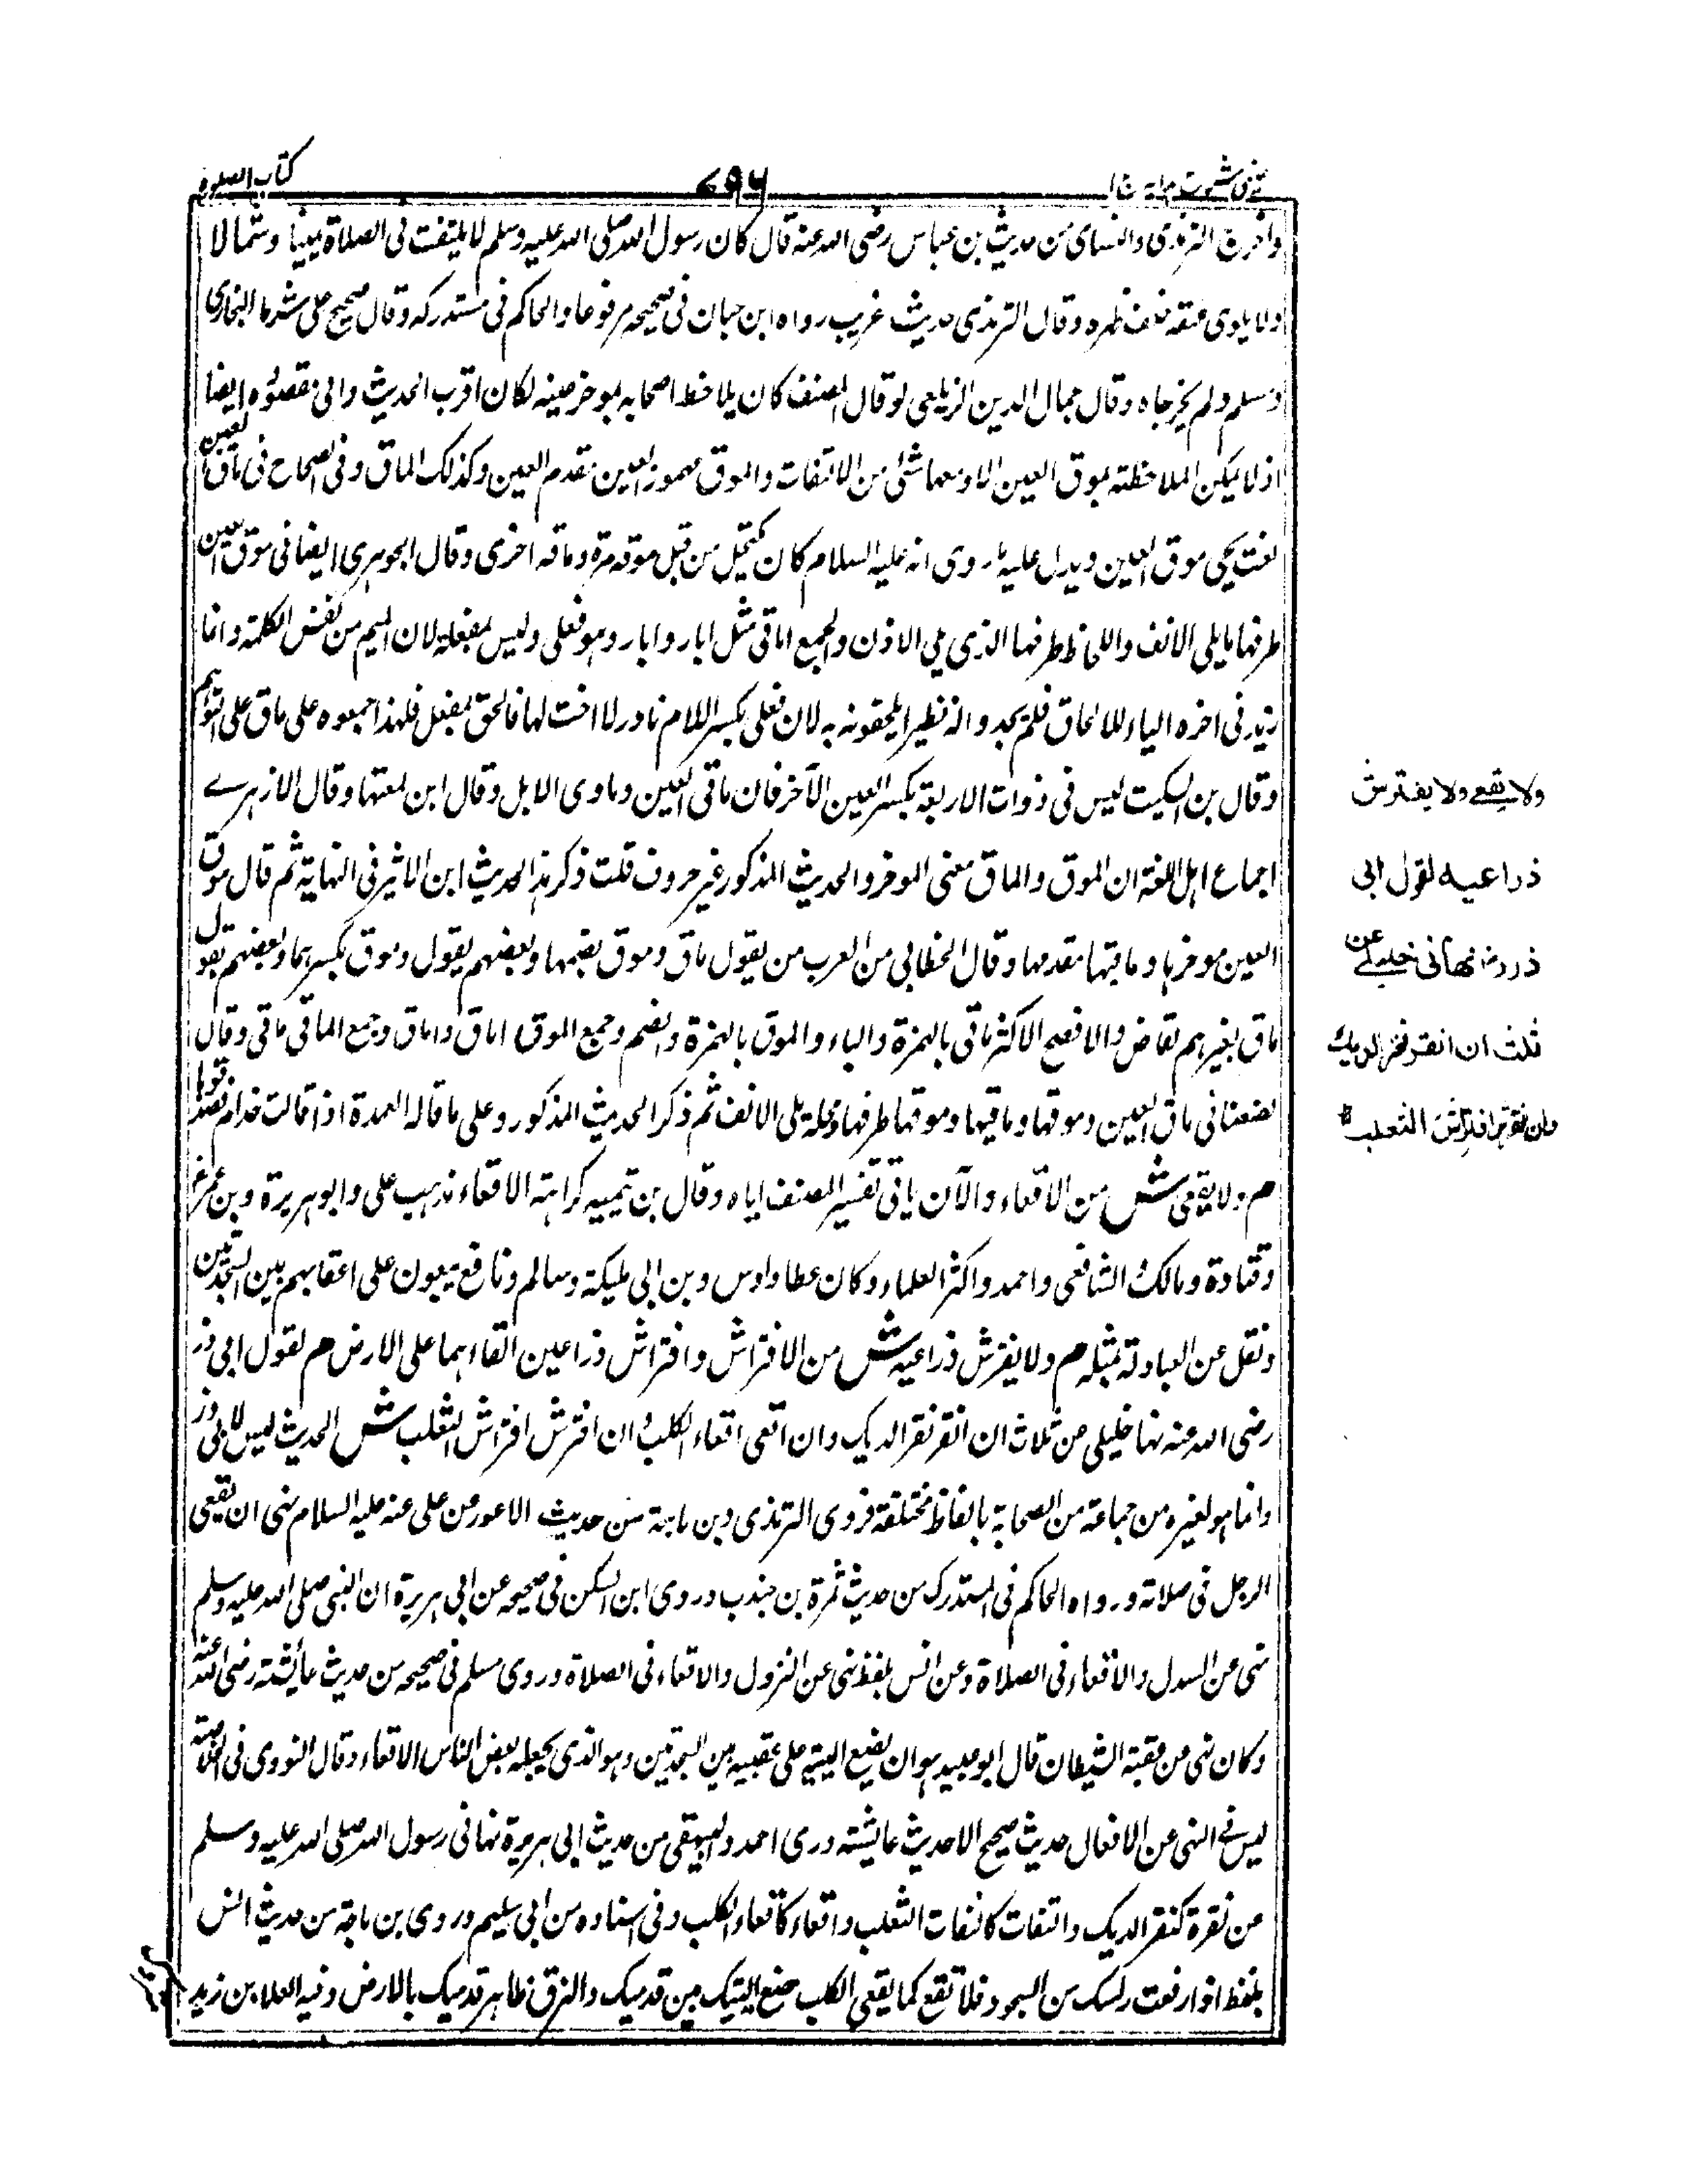 كتاب الصلوة
واخرج الترمذى والنساى من حديث بن عباس رضى الله عنه قال كان رسول الله صلى الله عليه وسلم لا يلتفت فى الصلاة يمينا وشمالا
ولا يلوى عنقه خلف ظهره وقال الترمذى حديث غريب رواه ابن حبان فى صحيحه مرفوعا والحاكم فى مستدركه وقال صحيح على شرط البخارى
ومسلم ولم يخرجاه وقال جمال الدين الزيلعى لو قال المصنف كان يلاحظ اصحابه بموخر عينه لكان اقرب الحديث والى مقصوده ايضا
اذ لا يمكن الملاحظته بموق العين الا ومعها شئ من الالتفات والموق مهموز العين مقدم العين وكذلك الماق وفى الصحاح فى ماق العين
لغت يحى موق العين ويدل عليه ما روى انه عليه السلام كان يكتحل من قبل موقه مرة وماقه اخرى وقال الجوهرى ايضا فى موق العين
طرفها ما يلى الانف واللحاظ طرفها الذى يلى الاذن والجمع اماقى مثل ابار وابار وهو فعلى وليس بمفعلة لان الميم من نفس الكلمة وانما
زيد فى اخره الياء للالحاق فلم يجدوا له نظيرا يلحقونه به لان فعلى بكسر اللام نادر لا اخت لها فالحق بمفعل فلهذا جمعوه على ماق على التوهم
وقال بن السكيت ليس فى ذوات الاربعة بكسر العين الآخر فان ماقى العين وماوى الابل وقال ابن معتها وقال الازهرے
اجماع اهل اللغة ان الموق والماق معنى الموخر والحديث المذكور غير معروف قلت ذكر هذا الحديث ابن الاثير فى النهاية ثم قال موق
العين موخرها وماقيها مقدمها وقال الخطابى من العرب من يقول ماق وموق بضمها وبعضهم يقول وموق بكسرها وبعضهم يقول
ماق بغير هم بقاض والافصح الاكثر ماقى بالهمزة والياء والموق بالهمزة والضم وجمع الموق اماق واماق وجمع الماقى ماقى وقال
بعضنا فى ماق العين وموقها وماقيها وموقها طرفها مما يلى الانف ثم ذكر الحديث المذكور وعلى ما قاله العمدة اذا قالت خدام فصدقوها
م ولا يقعى ش من الاقعاء والآن ياتى تفسير المصنف اياه وقال بن تيميه كراهته الاقعاء مذهب على وابو هريرة وبن عمر
وقتادة ومالك والشافعى واحمد واكثر العلماء وكان عطا وطاوس وبن ابى مليكة وسالم ونافع يقعون على اعقابهم بين السجدتين
ونقل عن العبادلة مثله م ولا يفترش ذراعيه ش من الافتراش وافتراش ذراعين القاءهما على الارض م لقول ابى ذر
رضى الله عنه نهانى خليلى من ثلاث ان انقر نقر الديك وان اقعى اقعاء الكلب وان افترش افتراش الثعلب ش الحديث ليس لابى ذر
وانما هو لغيره من جماعة من الصحابة بالفاظ مختلفة فروى الترمذى وبن ماجة من حديث الاعور عن على عنه عليه السلام نهى ان يقعى
الرجل فى صلاته ورواه الحاكم فى المستدرك من حديث ثمرة بن جندب وروى ابن السكن فى صحيحه عن ابى هريرة ان النبى صلى الله عليه وسلم
نهى عن السدل والاقعاء فى الصلاة وعن انس بلفظ نهى عن النزول والاقعاء فى الصلاة وروى مسلم فى صحيحه من حديث عائشة رضى الله عنه
وكان نهى من عقبة الشيطان قال ابو عبيد هو ان يضع اليتيه على عقبيه بين السجدتين وهو الذى يجعله بعض الناس الاقعاء وقال النووى فى الخلاصة
ليس فے النهى عن الاقعال حديث صحيح الا حديث عائشته وروى احمد والبيهقى من حديث ابى هريرة نهانى رسول الله صلى الله عليه وسلم
من نقرة كنقر الديك والتفات كالتفات الثعلب واقعاء كاقعاء الكلب وفى اسناده من ابى سليم وروى بن ماجة من حديث انس
بلفظ اذا رفعت راسك من السجود فلا تقع كما يقعى الكلب ضع اليتيك بين قدميك والزق ظاهر قدميك بالارض وفيه العلا بن زيد
ولا يقعے ولا يفترش
ذراعيه لقول ابى
ذر رضہ نهانى خليلے عن
ثلث ان انقر نقر الديك
وان افترش افتراش الثعلب